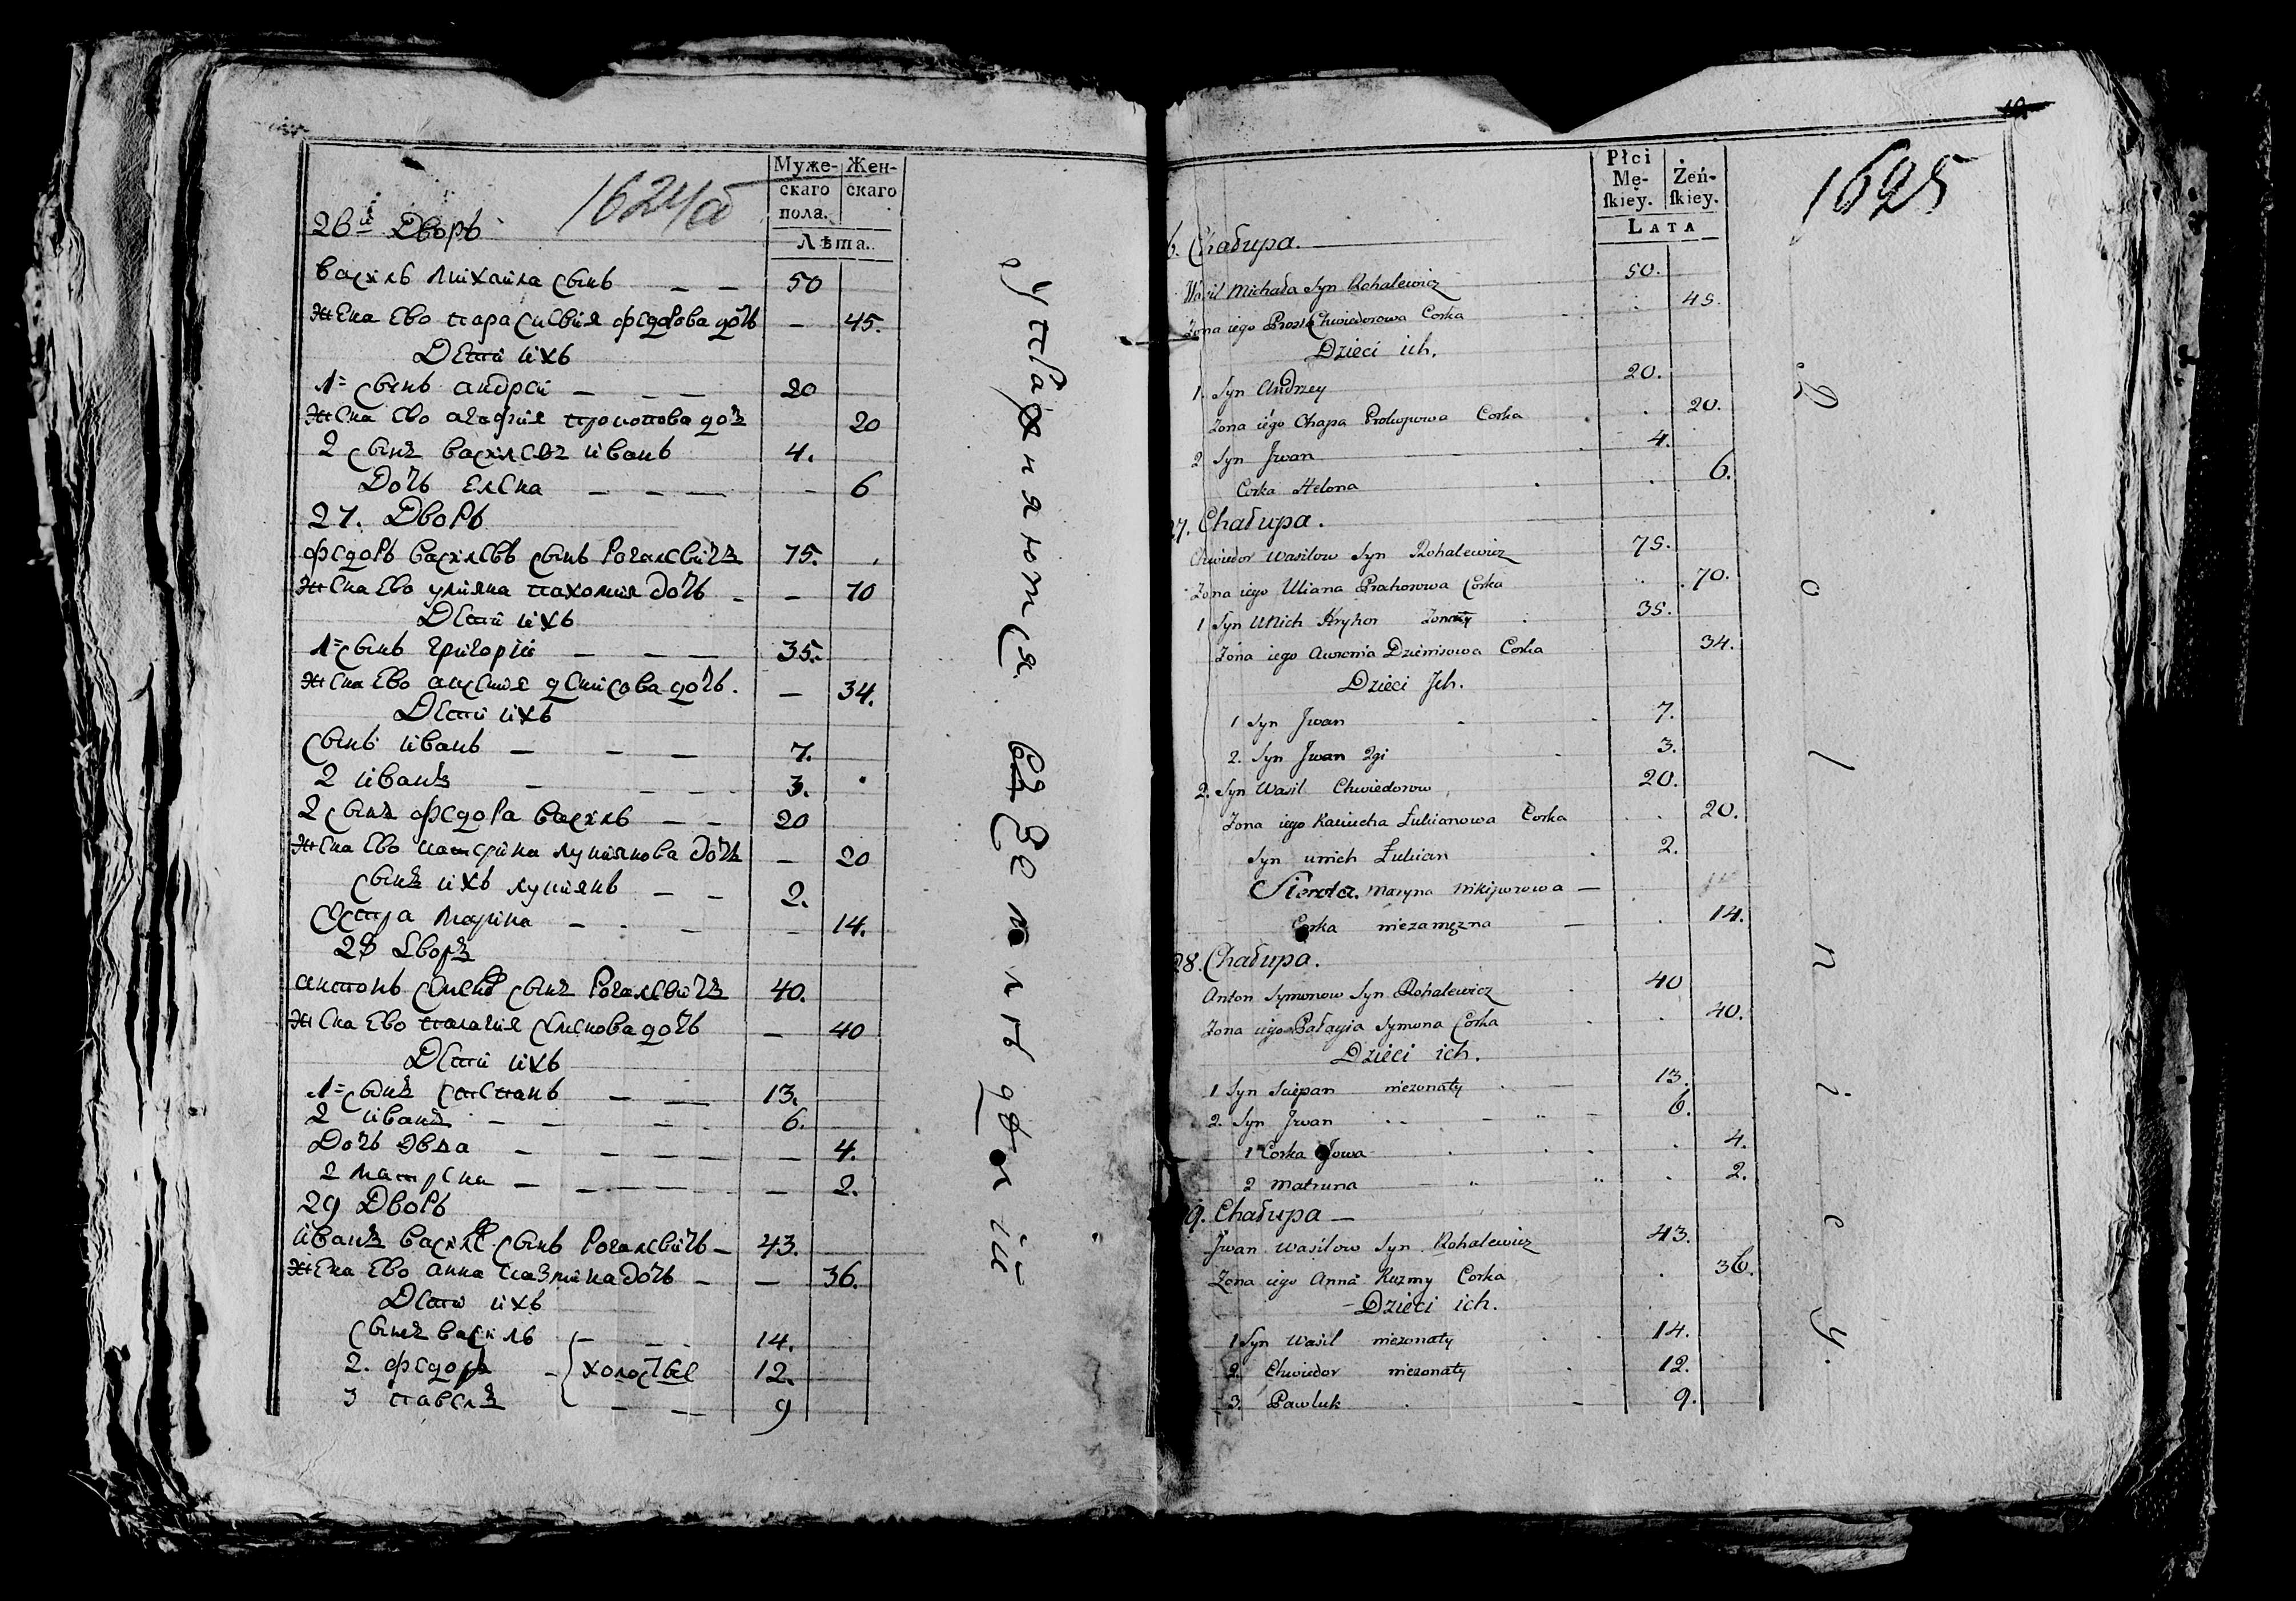 1624/об
Муже-
скаго
пола.
Жен-
скаго
Лѣта.
26й Дворъ
Василь Михаила сынъ — — 50
Жена Ево Парасковия Федорова дочь — 45.
Дети ихъ
1= сынъ андрей — — — 20
Жена Ево агафия Прокопова доч 20
2 сынъ василев иванъ 4.
Дочь Елена — — — - 6
27. Дворъ
Федоръ василевъ сынъ Рогалевичъ 75.
Жена Ево улияна Пахомия дочь - — 70
Дети ихъ
1= сынъ григорий — — — 35.
Жена Ево ксения денисова дочь. — 34.
Дети ихъ
сынъ иванъ — — — 7.
2 иванъ — - — — 3.
2 сынъ федора василь — — 20
Жена Ево катерина лукиянова дочь — 20
сынъ ихъ лукиянъ — — 2.
сестра Марина — . — — 14.
28 Дворъ
антонъ сынъ Рогалевичъ 40.
Жена Ево палагия семенова дочь — 40
Дети ихъ
1= сынъ степанъ — — 13.
2 иванъ — — — - 6.
Дочь Эва — — — — — 4.
2 матрена — — — — 2.
29 Дворъ
иванъ василев сынъ Рогалевичъ — 43.
Жена Ево анна казмина дочь — — 36.
Дети ихъ
сынъ василь — — 14.
2. федоръ - холостые 12.
3 павелъ — — 9
упражняются въ земледелии
1625
Płci
Mę-
ſkiey.
Żeń-
ſkiey.
LATA
6. Chałupa.
Wasil Michała Syn Rohalewicz 50.
Zona iego Chwiedorowa Corka 45.
Dzieci ich.
1. Syn Andrzey 20.
Zona iego Chapa Prokopowa Corka 20.
2 Syn Jwan 4.
Corka Helona 6.
27. Chałupa.
Chwiedor Wasilow Syn Rohalewicz 75.
Zona iego Uliana Prahorowa Corka 70.
1 Syn Unich Hryhor Zonaty 35.
Zona iego Dzienisowa Corka 34.
Dzieci Jch.
1 Syn Jwan 7.
2. Syn Jwan 2gi 3.
2. Syn Wasil Chwiedorow 20.
Zona iego Łukianowa Corka 20.
Syn unich Łukian 2.
Sierota. Maryna Nikiporowa —
Corka niezamęzna — 14.
28. Chałupa.
Anton Symonow Syn Rohalewicz 40
Zona iego Pałagia Symona Corka 40.
Dzieci ich.
1 Syn Sciepan niezonaty 13.
2. Syn Jwan 6.
1 Corka Jowa 4.
2 Matruna 2.
9. Chałupa —
Jwan Wasilow Syn Rohalewicz 43.
Zona iego Anna Kuzmy Corka 36.
Dzieci ich.
1 Syn Wasil niezonaty 14.
2. Chwiedor niezonaty 12.
3. Pawluk 9.
Rolnicy.